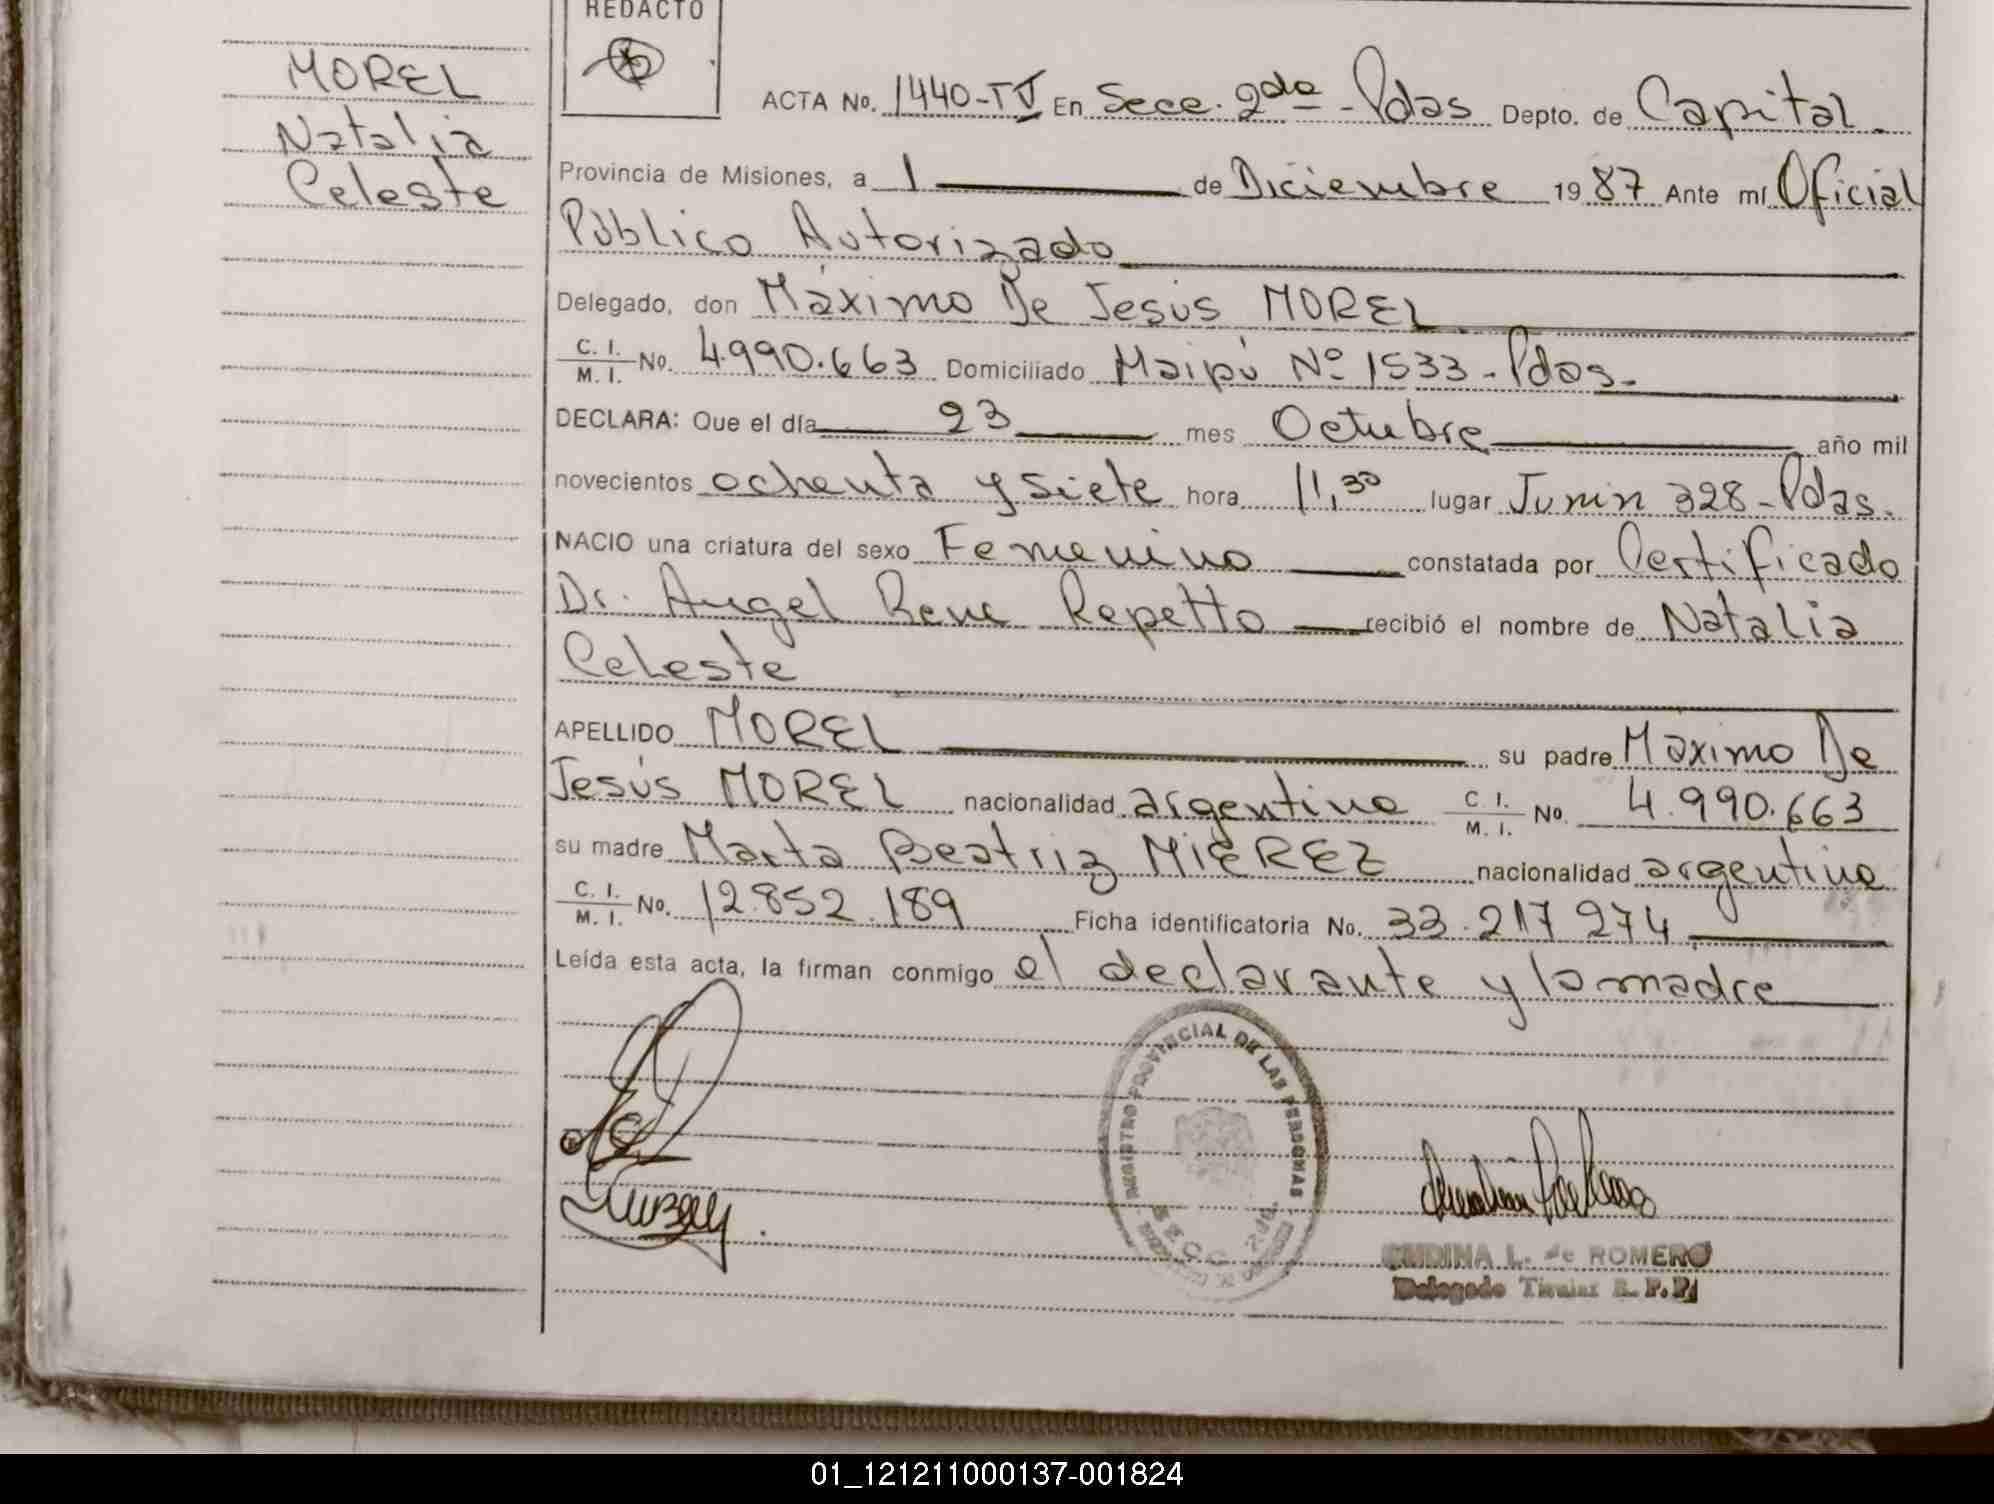 REDACTO
MOREL
Natalia
Celeste
ACTA No. 1440-TV En Secc. 2da - Pdas Depto. de Capital.
Provincia de Misiones, a 1 de Diciembre 1987 Ante mí Oficial
Público Autorizado
Delegado, don Máximo De Jesús MOREL
C. I. / M. I. No. 4.990.663 Domiciliado Maipú Nº 1533 - Pdas.
DECLARA: Que el día 23 mes Octubre año mil
novecientos ochenta y siete hora 11,30 lugar Junin 328 - Pdas.
NACIO una criatura del sexo Femenino constatada por Certificado
Dr. Angel Rene Repetto recibió el nombre de Natalia
Celeste
APELLIDO MOREL su padre Máximo De
Jesús MOREL nacionalidad argentina C. I. / M. I. No. 4.990.663
su madre Marta Beatriz MIEREZ nacionalidad argentina
C. I. / M. I. No. 12.852.189 Ficha identificatoria No. 33.217.274
Leída esta acta, la firman conmigo el declarante y la madre
REGISTRO PROVINCIAL DE LAS PERSONAS
SECC. 2da.
L. de ROMERO
Delegado Titular R. P. P.
01_121211000137-001824